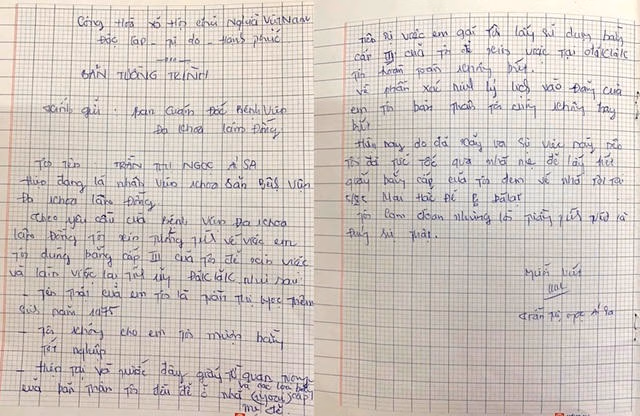 Cộng Hoà xã hội chủ Nghĩa Việt Nam
Độc lập - Tự do - Hạnh phúc
BẢN TƯỜNG TRÌNH
Kính gửi: Ban Giám Đốc Bệnh Viện
Đa Khoa Lâm Đồng
Tôi tên TRẦN THỊ NGỌC ÁI SA
Hiện đang là nhân viên khoa Sản Bệnh Viện
Đa Khoa Lâm Đồng
Theo yêu cầu của Bệnh Viện Đa Khoa
Lâm Đồng tôi xin tường trình về việc em
tôi dùng bằng cấp III của tôi để xin việc
và làm việc tại tỉnh ủy ĐăkLăk như sau
- Tên thật của em tôi là Trần Thị Ngọc Thêm
Sinh năm 1975
- Tôi không cho em tôi mượn bằng
Tốt nghiệp
- Hiện tại và trước đây giấy tờ quan trọng
và các loại bằng
của bản thân tôi đều để ở nhà
mẹ đẻ
Nên sự việc em gái tôi lấy sử dụng bằng
cấp III của tôi để xin việc tại ĐăkLăk
tôi hoàn toàn không biết.
Về phần xác minh lý lịch vào Đảng của
em tôi bản thân tôi cũng không hay
biết
Hiện nay do đã xảy ra sự việc này nên
tôi đã tức tốc qua nhà mẹ để lấy hết
giấy bằng cấp của tôi đem về nhà tôi tại
Mai Hắc Đế Đàlạt
Tôi cam đoan những lời tường trình trên là
đúng sự thật.
Người viết
Trần Thị Ngọc Ái Sa